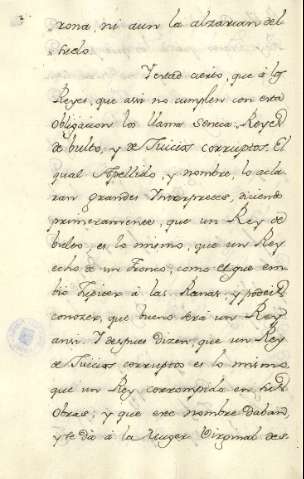 rona, ni aun la alzarian del
suelo.
Y estad cierto, que á los
Reyes, que assi no cumplen con esta
Obligacion los llama Seneca, Reyes
de bulto, y de Juicios corruptos. El
qual Apellido, y nombre, lo acla-
ran grandes Interpretes, diciendo
primeramente, que un Rey de
bulto, es lo mismo, que un Rey
echo de un Tronco, como el que em-
bió Jupiter á las Ranas, y podeis
conozer, que bueno será un Rey
ansi. Y despues dizen, que un Rey
de Juicios corruptos es lo mismo,
que un Rey corrompido en sus
Obras; y que ese nombre daban,
y se dá á la Muger Virginal des-